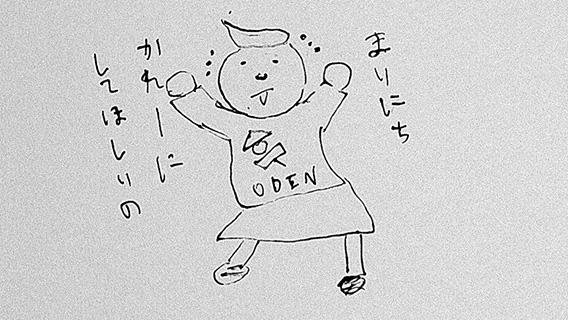 まいにち
かれーに
してほしいの
ODEN